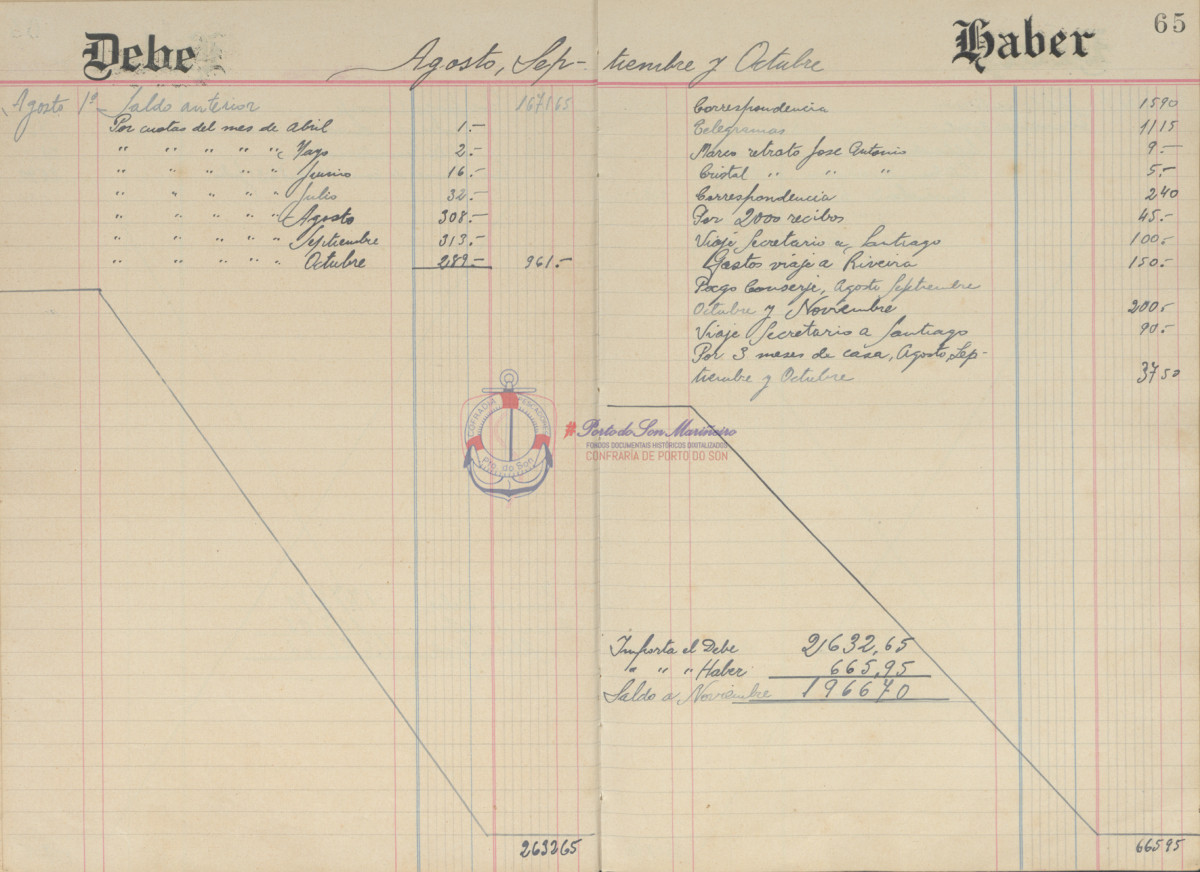 65
Debe
Agosto, Sep-tiembre y Octubre
Haber
Agosto 1º Saldo anterior 1671 65
Por cuotas del mes de Abril 1.-
" " " " " Mayo 2.-
" " " " " Junio 16.-
" " " " " Julio 32.-
" " " " " Agosto 308.-
" " " " " Septiembre 313.-
" " " " " Octubre 289.- 961.-
2632 65
Correspondencia 15 90
Telegramas 11 15
Marco retrato Jose Antonio 9.-
Cristal " " " 5.-
Correspondencia 2 40
Por 2000 recibos 45.-
Viaje Secretario a Santiago 100.-
Gastos viaje a Riveira 150.-
Pago Conserje, Agosto Septiembre
Octubre y Noviembre 200.-
Viaje Secretario a Santiago 90.-
Por 3 meses de casa, Agosto, Sep-
tiembre y Octubre 37 50
COFRADIA PESCADORES
Pto. do Son
#Porto do Son Mariñeiro
FONDOS DOCUMENTAIS HISTÓRICOS DIXITALIZADOS
CONFRARÍA DE PORTO DO SON
Importa el Debe 2,632,65
" " " Haber 665,95
Saldo a Noviembre 1966 70
665 95